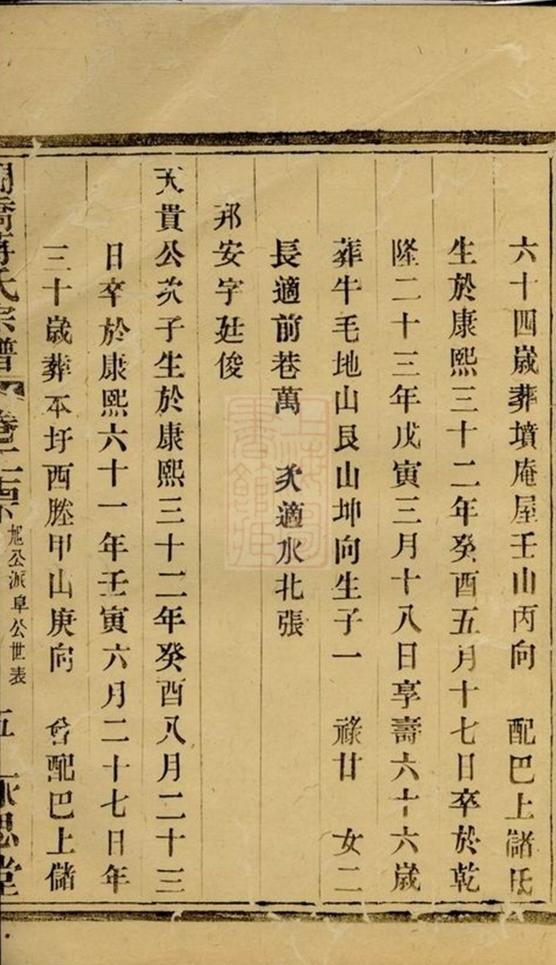 六十四歲葬墳庵屋壬山丙向 配巴上儲氏
生於康熙三十二年癸酉五月十七日卒於乾
隆二十三年戊寅三月十八日享壽六十六歲
葬牛毛地山艮山坤向生子一 祿廿 女二
長適前巷萬 次適水北張
邦安字廷俊
天貴公次子生於康熙三十二年癸酉八月二十三
日卒於康熙六十一年壬寅六月二十七日年
三十歲葬本圩西塍甲山庚向 曾配巴上儲
蔣氏宗譜
旭公派阜公世表
五
永思堂